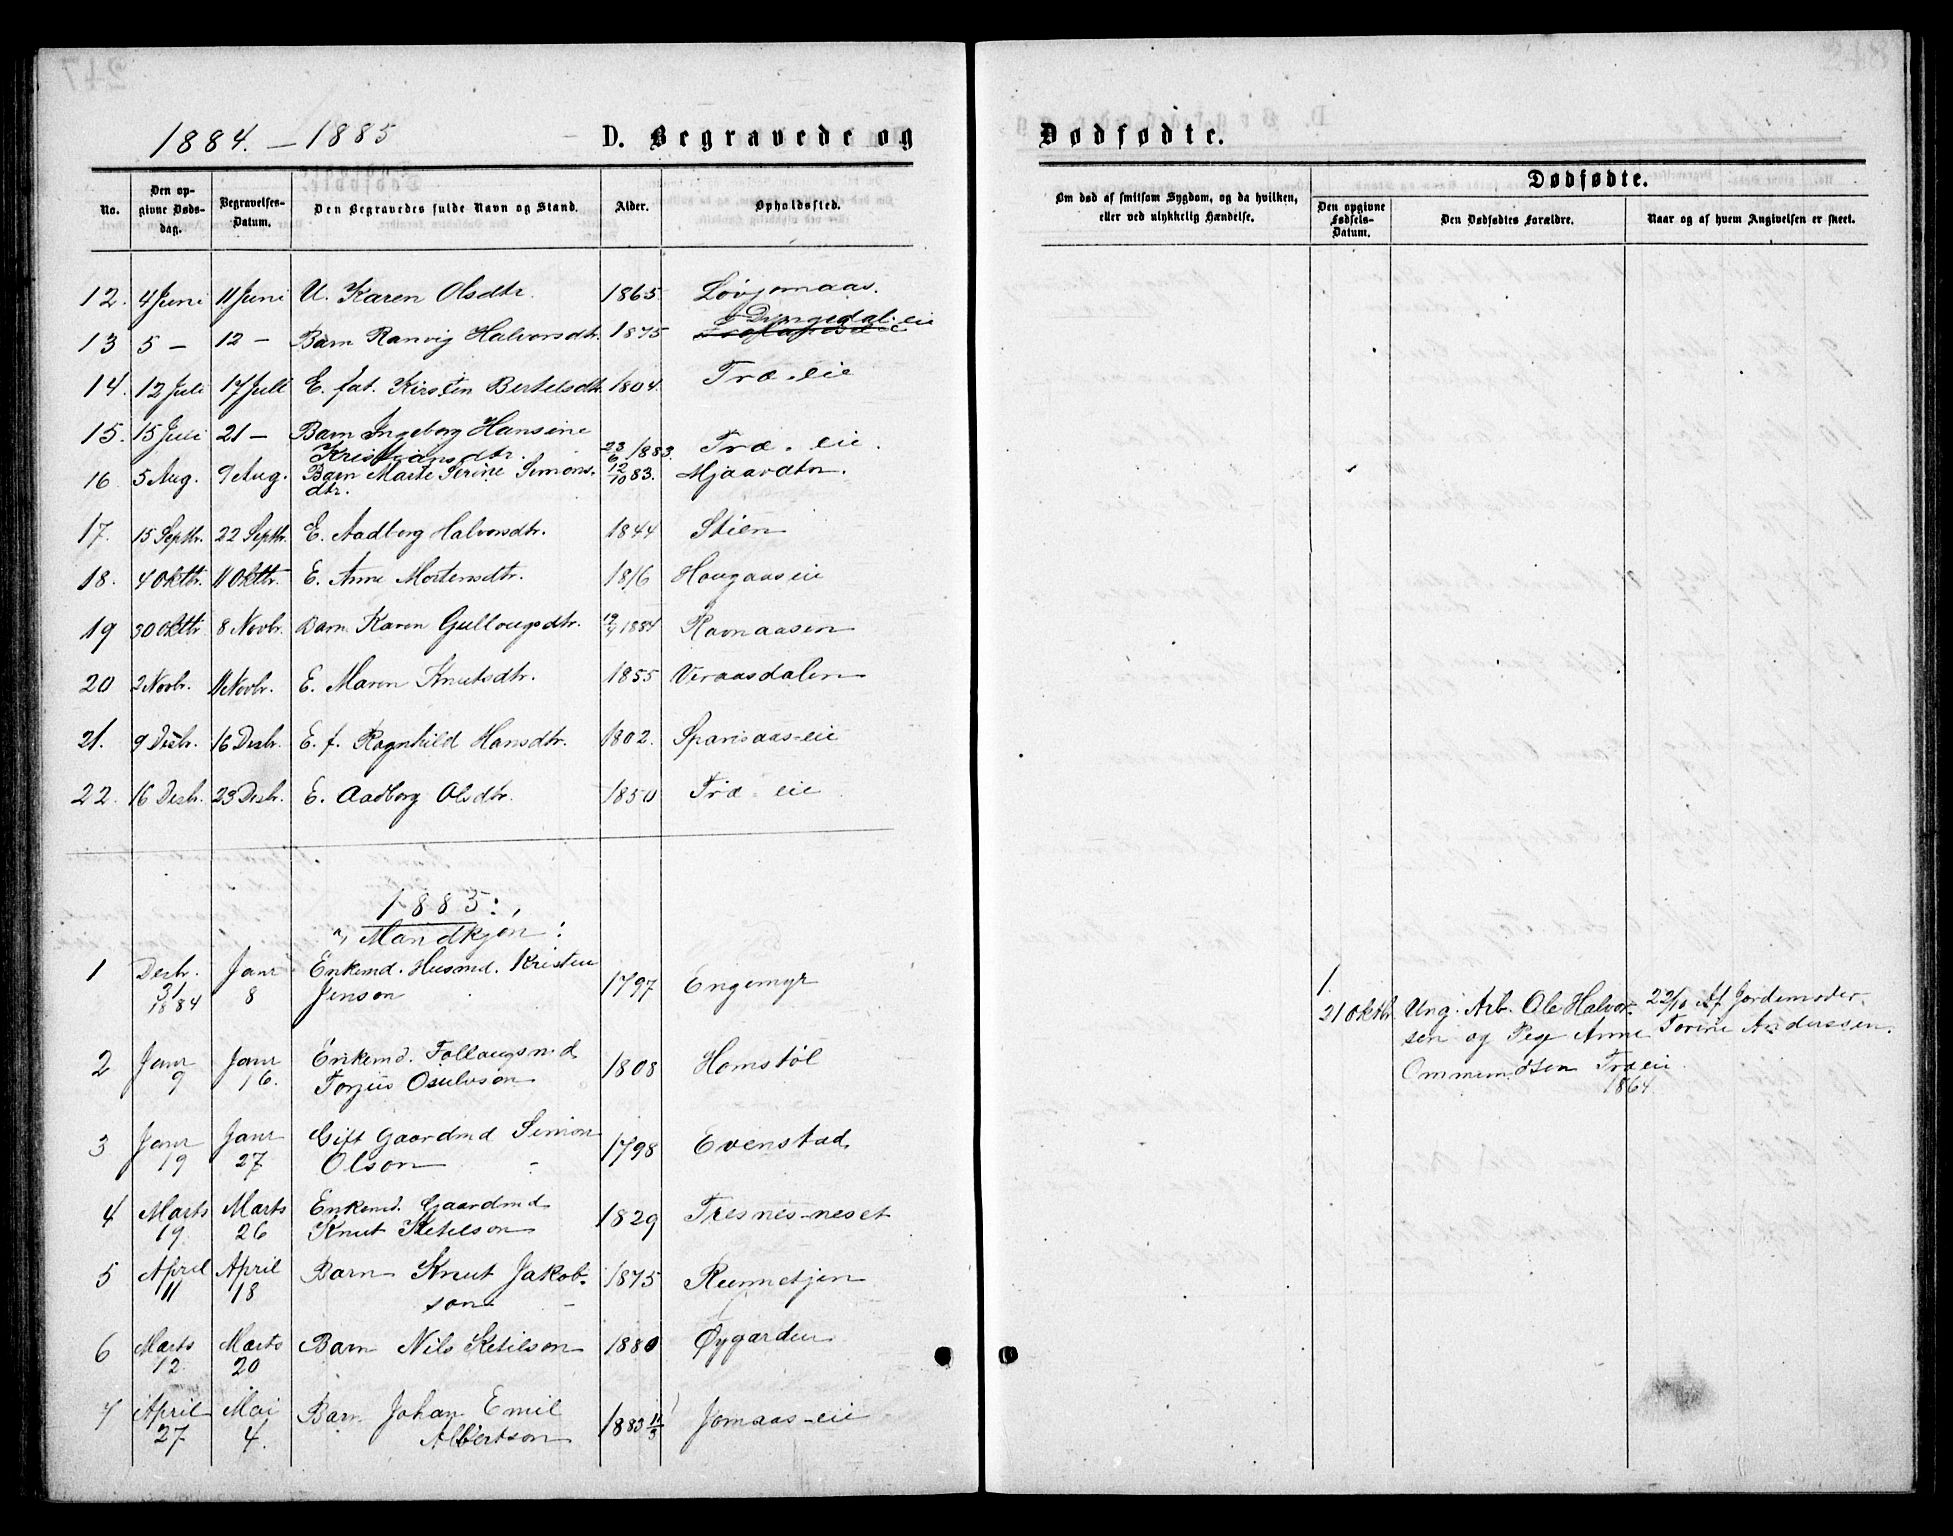 1884. – 1885
D. Begravede og
Dødfødte.
No.
Den opgivne Døds-dag.
Begravelses-Datum.
Den Begravedes fulde Navn og Stand.
Alder.
Opholdssted.
Om død af smitsom Sygdom, og da hvilken, eller ved ulykkelig Hændelse.
Dødfødte.
Den opgivne Fødsels-Datum.
Den Dødfødtes Forældre.
Naar og af hvem Angivelsen er skeet.
12. 4 Juni 11 Juni U. Karen Olsdtr. 1865. Løvjomaas.
13 5 – 12 – Barn Ranvig Halvorsdtr. 1875 Dyngedal. eie
14. 12 Juli 17 Juli E. fat. Kirsten Bertelsdtr. 1804. Træ. eie
15. 15 Juli 21 – Barn Ingeborg Hansine
Kristiansdtr. 23/6 1883. Træ. eie.
16 5 Aug. 9 Aug. Barn Marte Serine Simons-
dtr. 12/10 83. Mjaavatn.
17. 15 Septbr. 22 Septbr. E. Aadborg Halvorsdtr. 1844 Stien
18. 4 Oktbr. 11 Oktbr. E. Anne Mortensdtr. 1816 Haugaas eie
19 30 Oktbr 8 Novbr. Barn Karen Gullougsdtr. 19/4 1884 Ravnaasen
20 2 Novbr. 11 Novbr. E. Maren Knutsdtr. 1855 Veraasdalen
21. 9 Desbr. 16 Desbr. E. f. Ragnhild Hansdtr. 1802. Sparsaas-eie
22. 16 Desbr. 23 Desbr. E. Aadborg Olsdtr. 1850 Træ eie
1885:
Mandkjøn:
1 Desbr. 31 1884 Janr 8 Enkemd. Husmd. Kristen
Jenson 1797 Engemyr
2 Janr 9 Janr 16. Enkemd. Follaugsmd
Torjus Osulvson 1808 Homstøl
3 Janr 19 Janr 27 Gift Gaardmd Simon
Olson 1798 Evenstad
4 Marts 19 Marts 26 Enkemd. Gaardmd
Knut Ketilson 1829 Tresnes-neset
5 April 11 April 18 Barn Knut Jakob-
son 1875 Rennetjen
6 Marts 12 Marts 20 Barn Nils Ketilson 1880 Øygarden
7 April 27 Mai 4. Barn Johan Emil
Albertson 1883 11/3 Jomaas-eie
1.
21 Oktbr Ung. Arb. Ole Halvor- 22/10 Af Jordemoder
sen og Pige Anne Torine Andersen.
Ommundsen Træ eie.
1864.